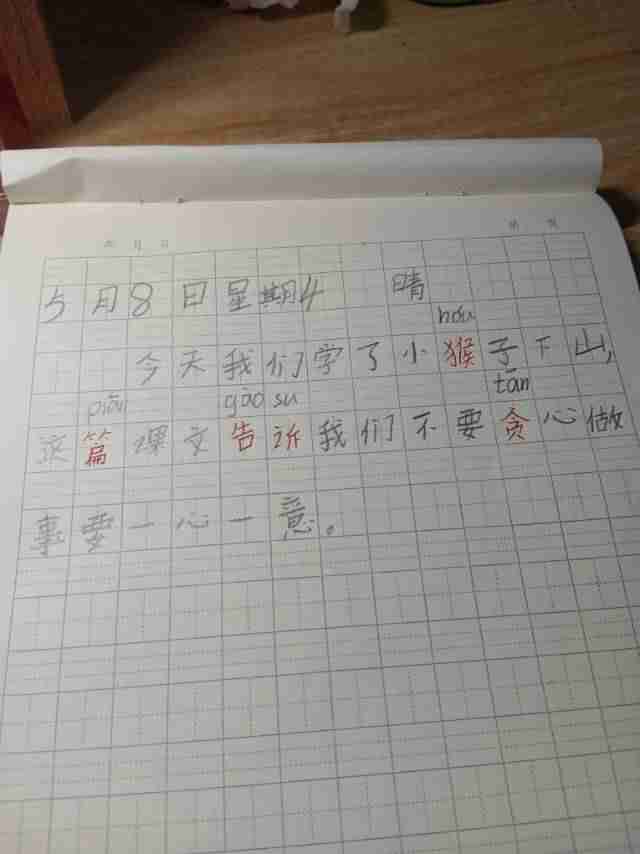 5月8日星期4 晴
hóu
今天我们学了小猴子下山,
piān gào su tān
这篇课文告诉我们不要贪心做
事要一心一意。